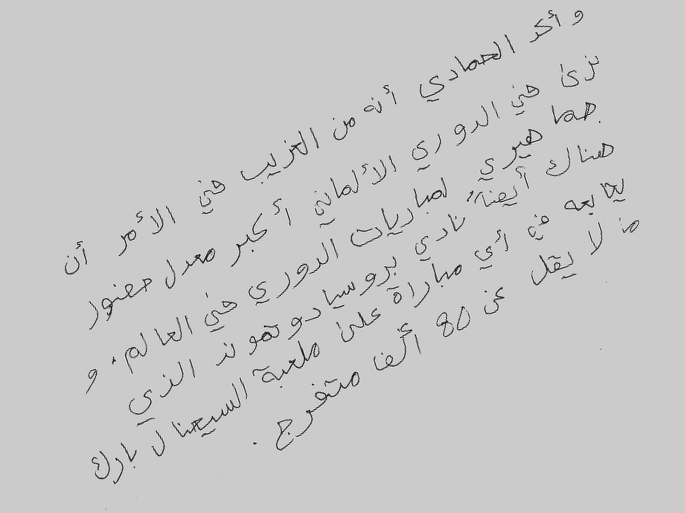 وأكد الحمادي أنه من الغريب في الأمر أن
نرى في الدوري الألماني أكبر معدل حضور
جماهيري لمباريات الدوري في العالم، و
هناك أيضاً نادي بروسيا دوتموند الذي
يتابعه في أي مباراة على ملعبة السيعنال بارك
ما لا يقل عن 80 ألف متفرج.